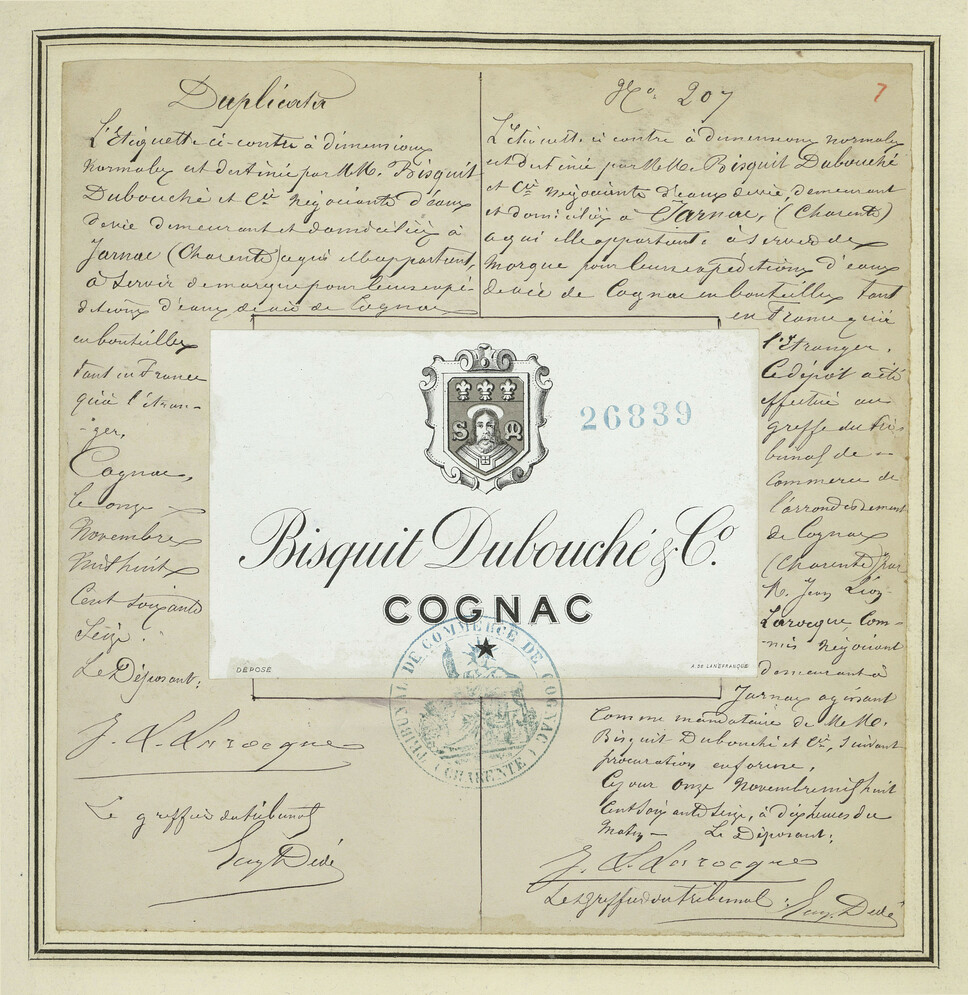 Duplicata
L'Etiquette ci-contre à dimensions
normales est destinée par MM. Bisquit
Dubouché et Cie négociants d'eaux
de vie demeurant et domiciliés à
Jarnac (Charente) à qui elle appartient,
à servir de marque pour leurs expé-
ditions d'eaux de vie de Cognac
en bouteilles
tant en France
qu'à l'étran-
-ger.
Cognac,
le onze
Novembre
Mil huit
Cent soixante
Seize.
Le Déposant:
J. L. Larocque
Le greffier du tribunal
Eug. Dédé
No. 207
7
L'Etiquette ci contre à dimensions normales
est destinée par MM. Bisquit Dubouché
et Cie négociants d'eaux de vie, demeurant
et domiciliés à Jarnac, (Charente)
à qui elle appartient, à servir de
marque pour leurs expéditions d'eaux
de vie de Cognac en bouteilles tant
en France qu'à
l'Etranger.
Ce dépôt a été
effectué au
greffe du tri-
bunal de
Commerce de
l'arrondissement
de Cognac
(Charente) par
M. Jean Léon
Larocque Com-
mis négociant
demeurant à
Jarnac agissant
comme mandataire de MM.
Bisquit-Dubouché et Cie, suivant
procuration en forme.
Ce jour onze Novembre mil huit
Cent soixante seize, à dix heures du
Matin — Le Déposant:
J. L. Larocque
Le greffier du tribunal: Eug. Dédé
S M
26839
Bisquit Dubouché & Co.
COGNAC
DÉPOSÉ
A. DE LANZFRANQUE
TRIBUNAL DE COMMERCE DE COGNAC (CHARENTE)